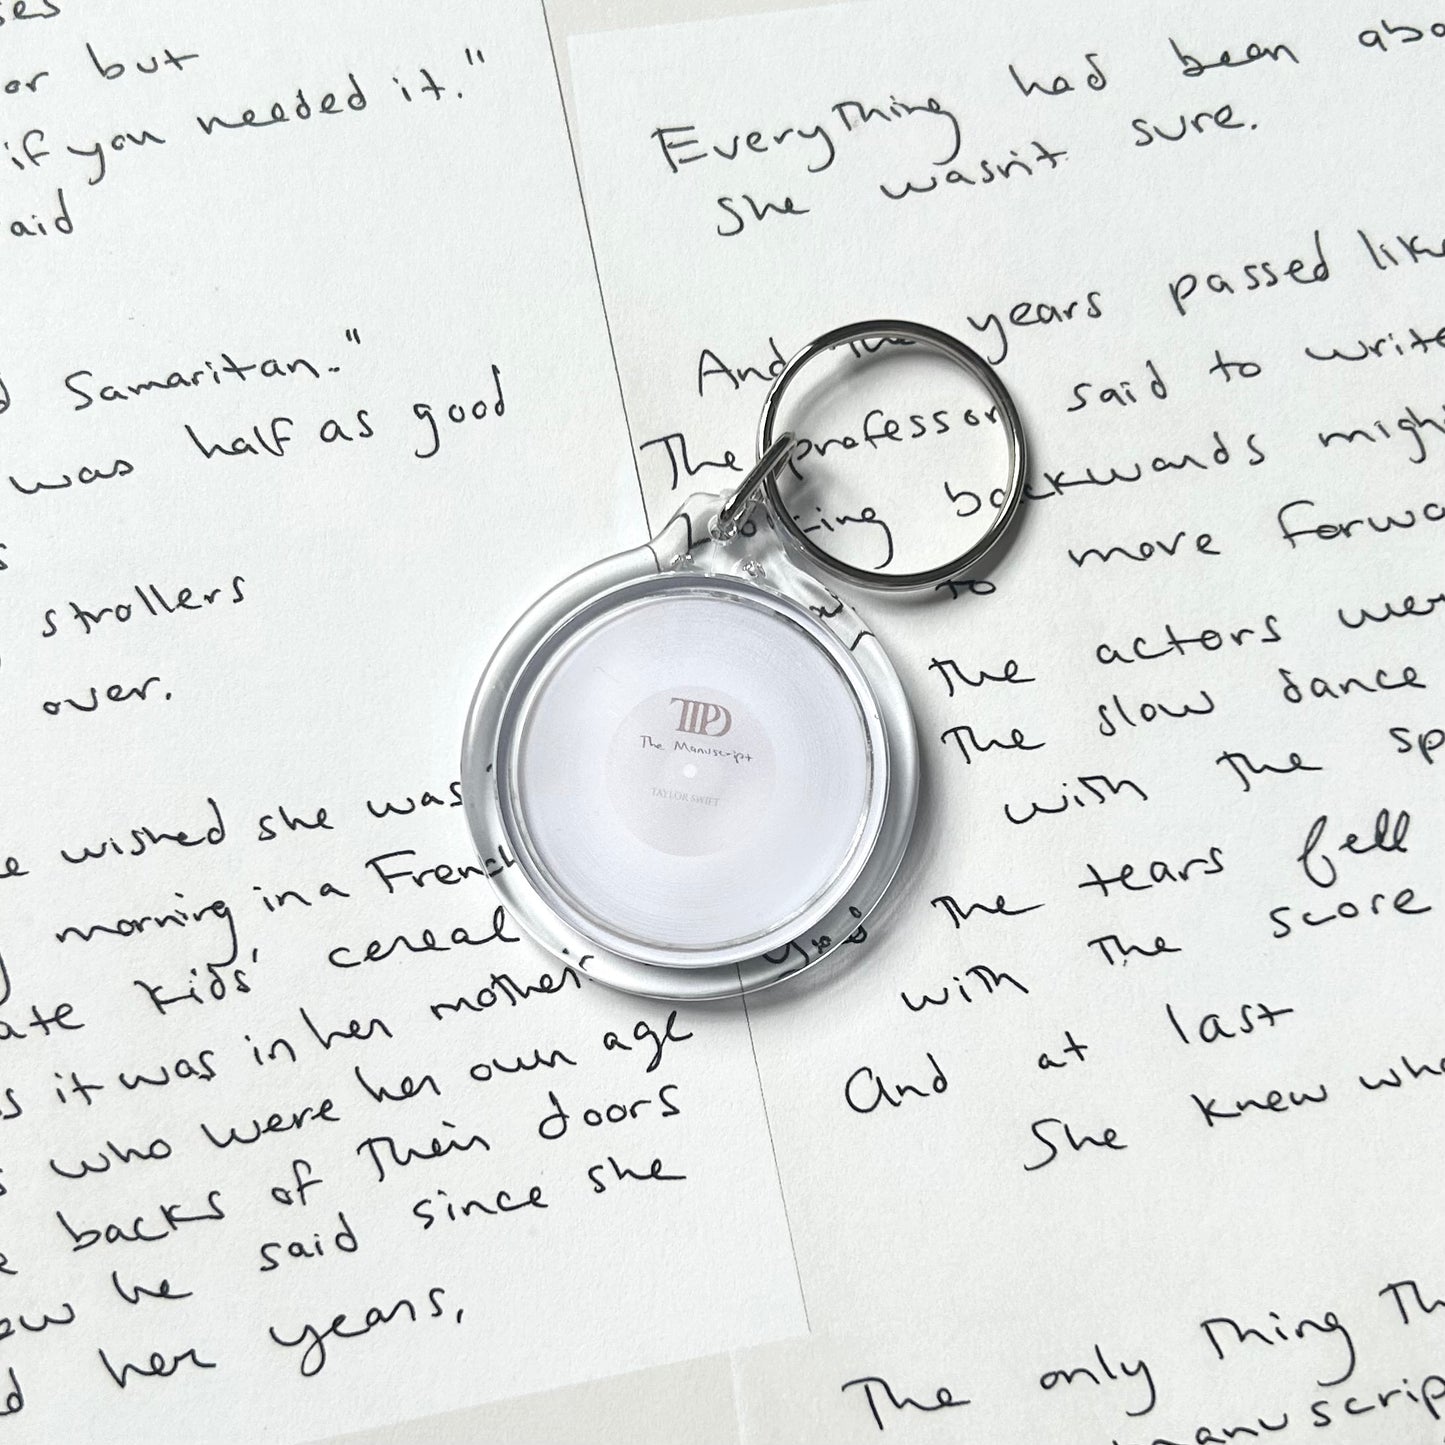 or but
if you needed it."
aid
Samaritan."
was half as good
strollers
over.
wished she was
morning in a French
ate kids' cereal
it was in her mother's
who were her own age
backs of their doors
he said since she
her years,
Everything had been
she wasn't sure.
And the years passed
The professor said to write
Looking backwards
to move
the actors
the slow dance
with the
the tears fell
with the score
And at last
She knew
The only thing
TTPD
The Manuscript
TAYLOR SWIFT